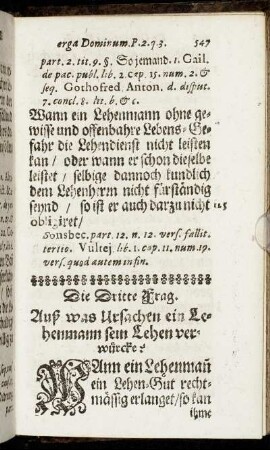 erga Dominum. P. 2. q. 3. 547
part. 2. tit. 9. §. So jemand. 1. Gail.
de pac. publ. lib. 2. cap. 15. num. 2. &
seq. Gothofred. Anton. d. disput.
7. concl. 8. lit. b. & c.
Wann ein Lehenmann ohne ge-
wisse und offenbahre Lebens-Ge-
fahr die Lehendienst nicht leisten
kan / oder wann er schon dieselbe
leistet / selbige dannoch kundlich
dem Lehenhrrn nicht fürständig
seynd / so ist er auch darzu nicht
obligiret /
Sonsbec. part. 12. n. 12. vers. fallit.
tertio. Vultej. lib. 1. cap. 11. num. 19.
vers. quod autem in fin.
Die Dritte Frag.
Auß was Ursachen ein Le-
henmann sein Lehen ver-
würcke?
WAnn ein Lehenmañ
ein Lehen-Gut recht-
mässig erlanget / so kan
ihme